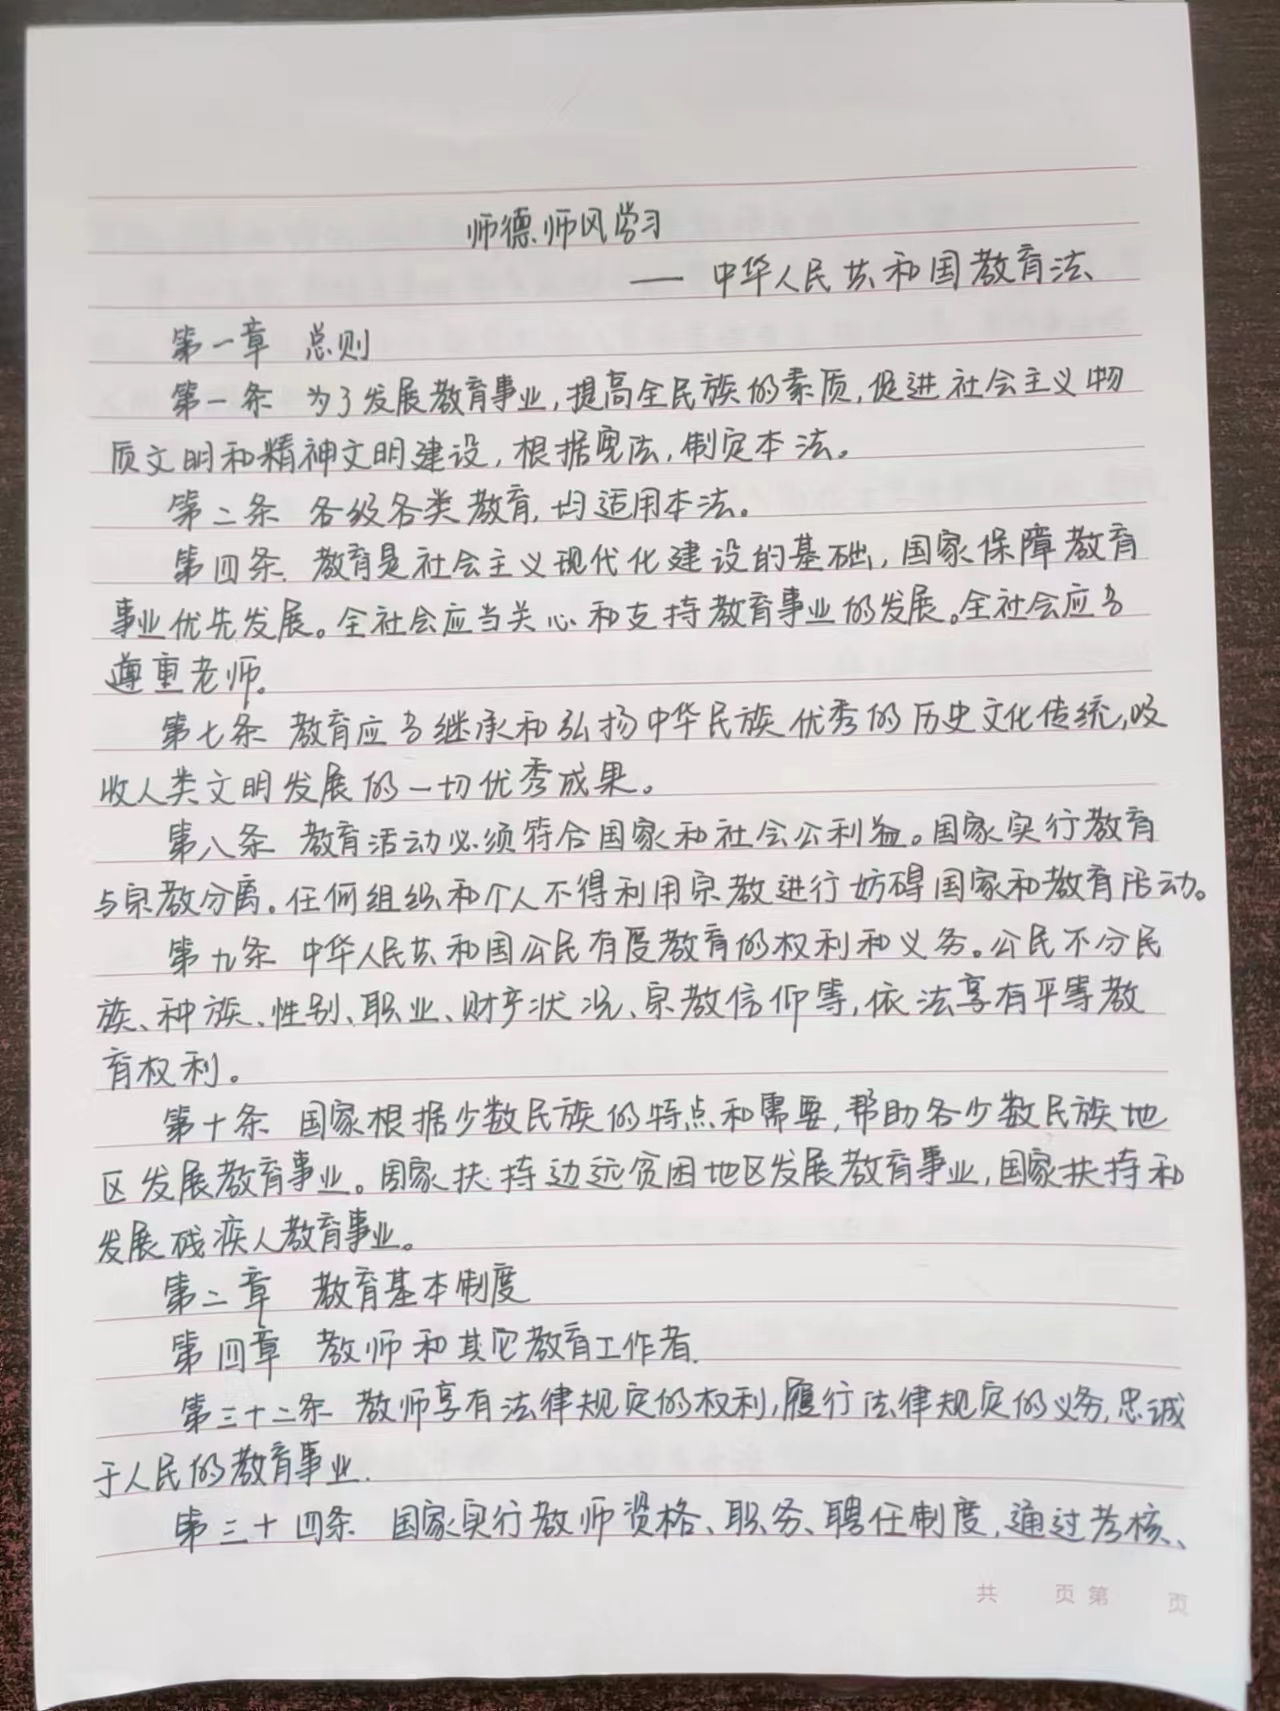 师德师风学习
—— 中华人民共和国教育法
第一章 总则
第一条 为了发展教育事业,提高全民族的素质,促进社会主义物
质文明和精神文明建设,根据宪法,制定本法。
第二条 各级各类教育,均适用本法。
第四条. 教育是社会主义现代化建设的基础,国家保障教育
事业优先发展。全社会应当关心和支持教育事业的发展。全社会应当
遵重老师。
第七条 教育应当继承和弘扬中华民族优秀的历史文化传统,吸
收人类文明发展的一切优秀成果。
第八条 教育活动必须符合国家和社会公利益。国家实行教育
与宗教分离。任何组织和个人不得利用宗教进行妨碍国家和教育活动。
第九条 中华人民共和国公民有受教育的权利和义务。公民不分民
族、种族、性别、职业、财产状况、宗教信仰等,依法享有平等教
育权利。
第十条 国家根据少数民族的特点和需要,帮助各少数民族地
区发展教育事业。国家扶持边远贫困地区发展教育事业,国家扶持和
发展残疾人教育事业。
第二章 教育基本制度
第四章 教师和其它教育工作者.
第三十二条 教师享有法律规定的权利,履行法律规定的义务,忠诚
于人民的教育事业.
第三十四条 国家实行教师资格、职务、聘任制度,通过考核、
共 页 第 页